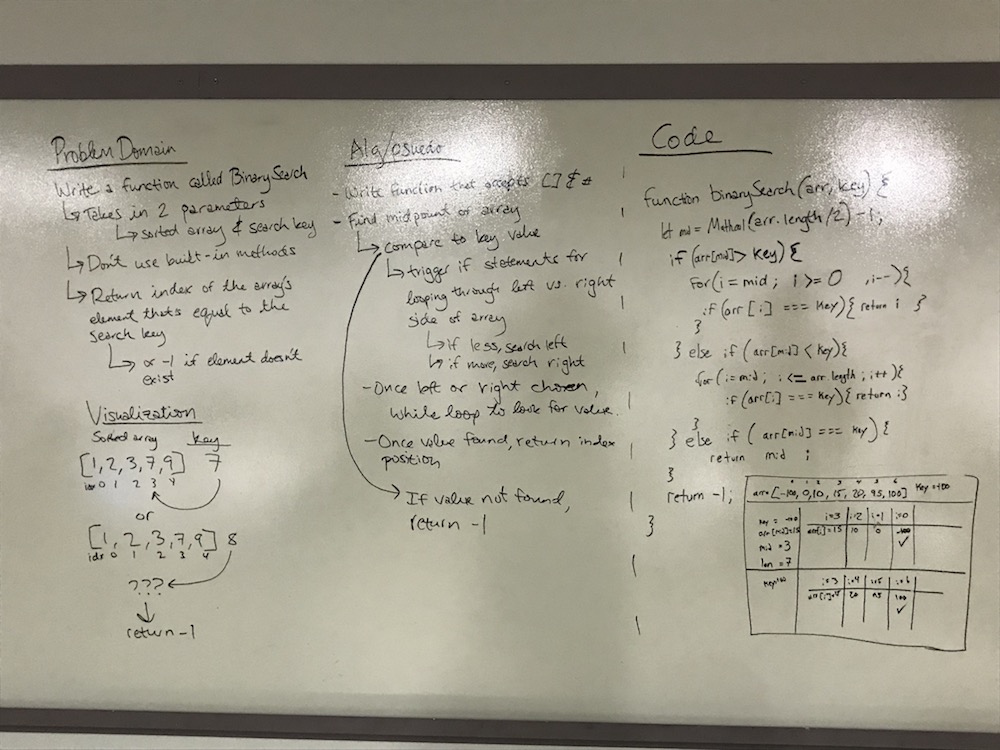 Problem Domain
Write a function called BinarySearch
↳ Takes in 2 parameters
↳ sorted array & search key
↳ Don't use built-in methods
↳ Return index of the array's
element that's equal to the
search key
↳ or -1 if element doesn't
exist
Visualization
Sorted array key
[1, 2, 3, 7, 9] 7
idx 0 1 2 3 4
or
[1, 2, 3, 7, 9] 8
idx 0 1 2 3 4
???
↓
return -1
Alg/psuedo
- Write function that accepts [] & #
- Find midpoint of array
↳ compare to key value
↳ trigger if statements for
looping through left vs. right
side of array
↳ if less, search left
↳ if more, search right
- Once left or right chosen,
while loop to look for value.
- Once value found, return index
position
If value not found,
return -1
Code
function binarySearch(arr, key) {
let mid = (arr.length/2) -1;
if (arr[mid] > key) {
for(i = mid; i >= 0 , i--) {
if (arr[i] === key) { return i }
}
} else if (arr[mid] < key) {
for (i = mid; i <= arr.length; i++) {
if (arr[i] === key) { return i }
}
} else if ( arr[mid] === key) {
return mid ;
}
return -1;
}
0 1 2 3 4 5 6
arr [-100, 0, 10, 15, 20, 95, 100]
key = -100 i=3 i=2 i=1 i=0
arr[mid]=15 arr[i]=15 10 0 -100
mid = 3 ✓
len = 7
key=100 i=3 i=4 i=5 i=6
arr[i]=15 20 95 100
✓